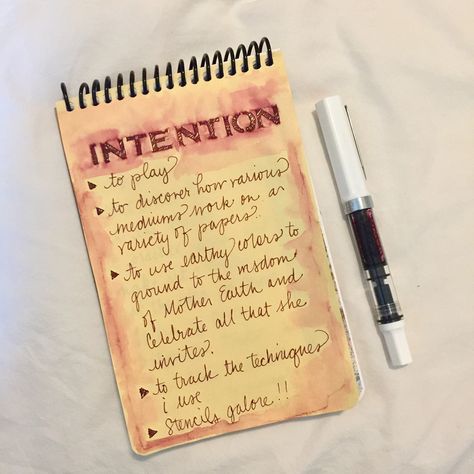 INTENTION
▸ to play
▸ to discover how various
mediums work on a
variety of papers.
▸ to use earthy colors to
ground to the wisdom
of Mother Earth and
celebrate all that she
invites.
▸ to track the techniques
i use
▸ stencils galore!!